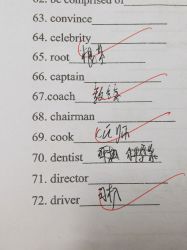 62. be comprised of
63. convince
64. celebrity
65. root 根基
66. captain
67.coach 教练
68. chairman
69. cook
70. dentist 牙医
71. director
72. driver 司机